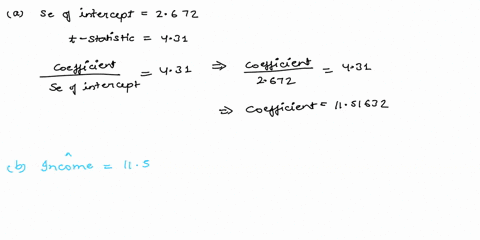 (a) Se of intercept = 2.672
t-statistic = 4.31
Coefficient / Se of intercept = 4.31 ⇒ Coefficient / 2.672 = 4.31
⇒ Coefficient = 11.51632
(b) Income^ = 11.5